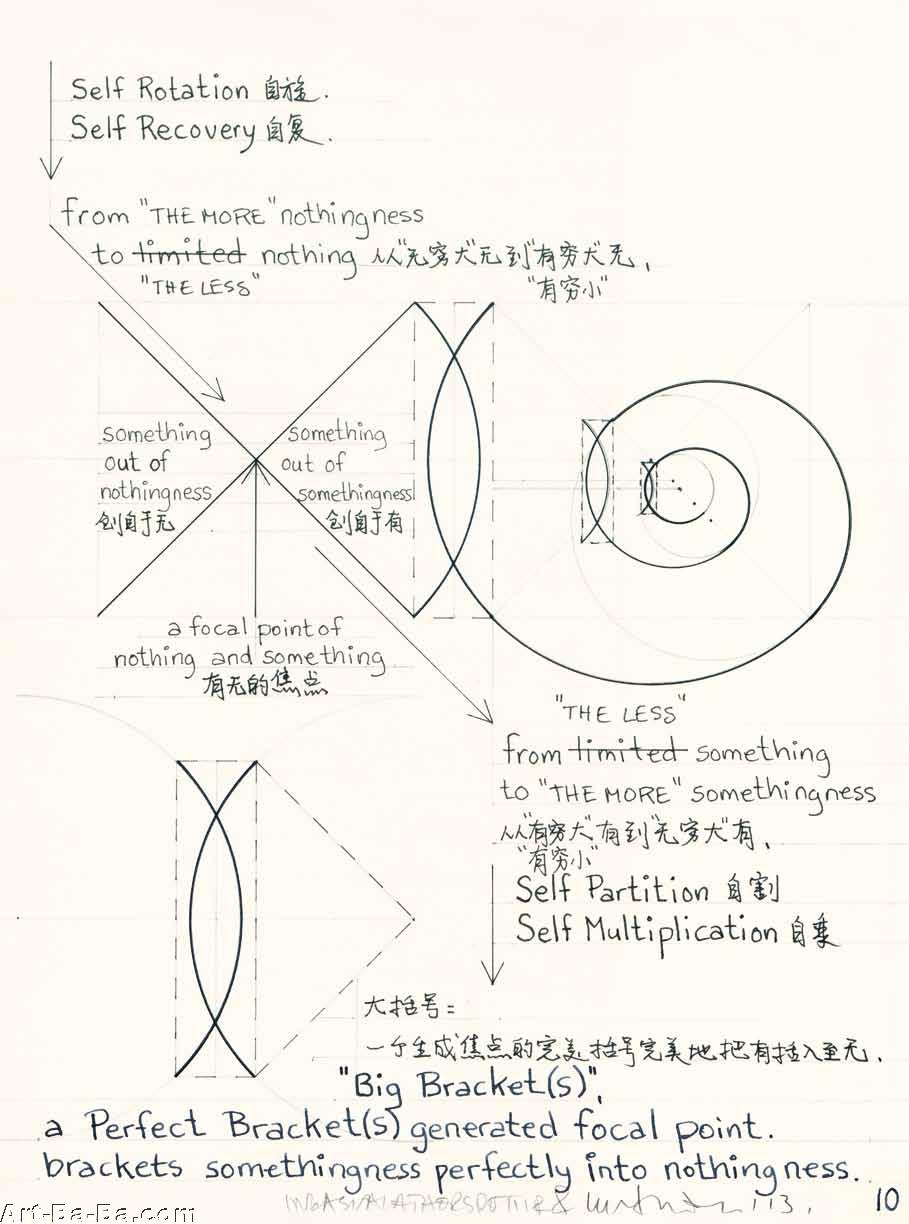 Self Rotation 自旋.
Self Recovery 自复.
from "THE MORE" nothingness
to limited nothing 从"无穷大"无到"有穷大"无、
"THE LESS" "有穷小"
something
out of
nothingness
创自于无
something
out of
somethingness
创自于有
a focal point of
nothing and something
有无的焦点
"THE LESS"
from limited something
to "THE MORE" somethingness
从"有穷大"有到"无穷大"有、
"有穷小"
Self Partition 自割
Self Multiplication 自乘
大括号=
一个生成焦点的完美括号完美地把有括入至无.
"Big Bracket(s)",
a Perfect Bracket(s) generated focal point.
brackets somethingness perfectly into nothingness.
'13.
10
Art-Ba-Ba.com